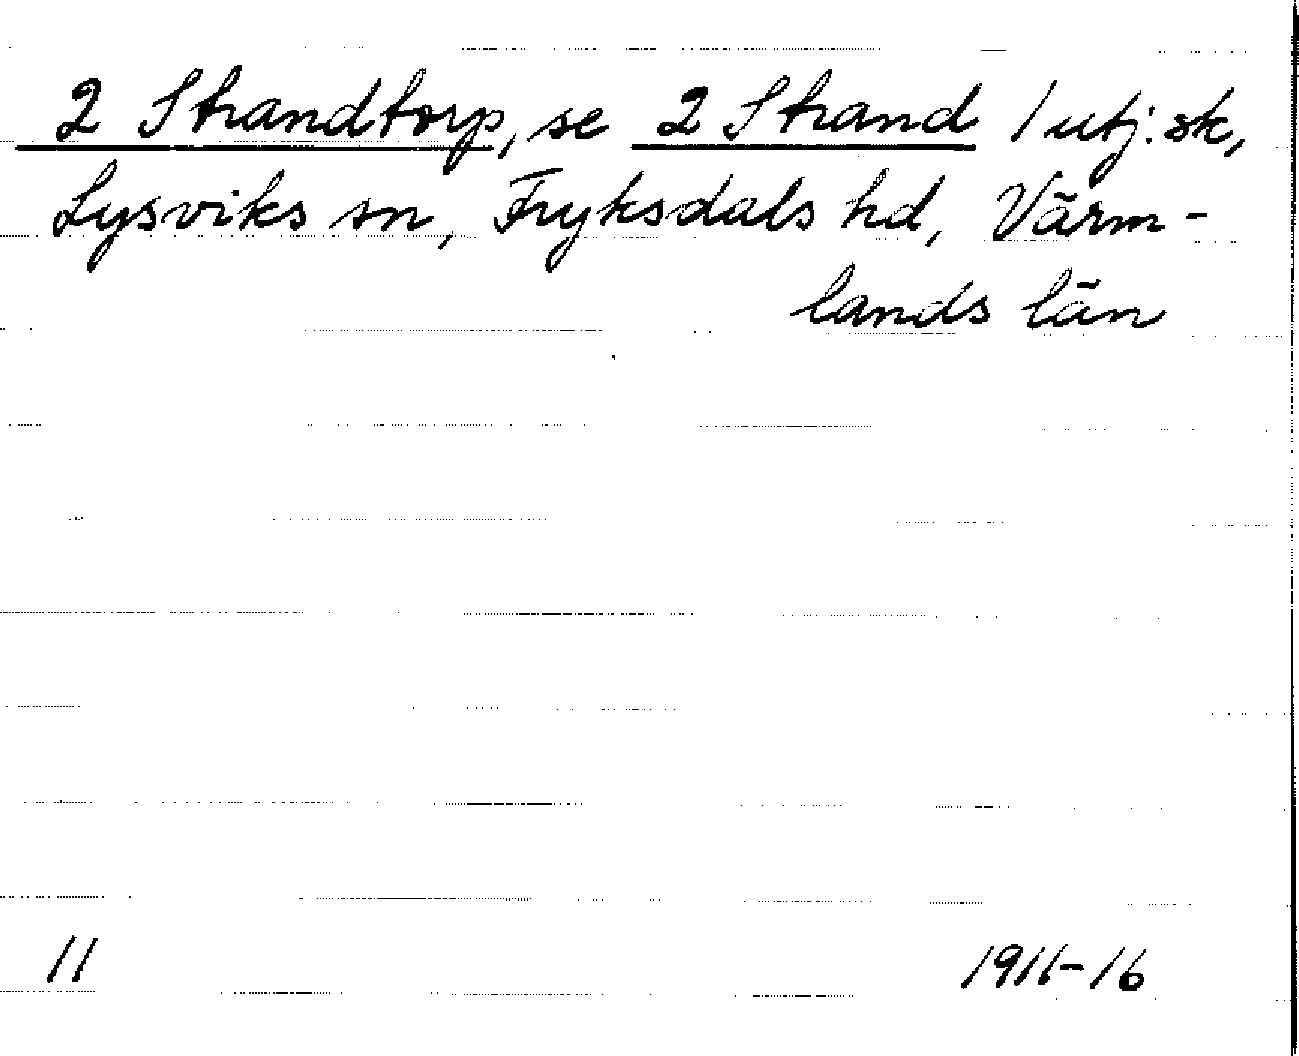 2 Strandtorp, se 2 Strand 1 utj:sk,
Lysviks sn, Fryksdals hd, Värm-
lands län
11 1911-16